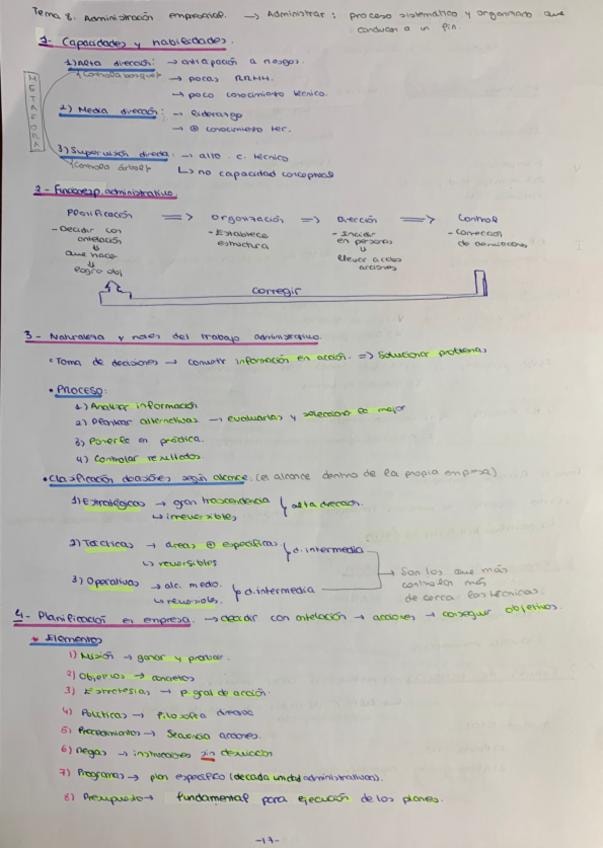 Tema 8. Administración empresarial. → Administrar: proceso sistemático y organizado que
conducen a un fin.
1- Capacidades y habilidades.
1) Alta dirección: → anticipación a riesgos.
(controla bosque) → pocas RRHH.
→ poco conocimiento técnico.
METAFORA
2) Media dirección: → liderazgo
→ ⊕ conocimiento tec.
3) Supervisión directa → alto c. técnico
(controla árbol) ↳ no capacidad conceptual
2- Funciones p. administrativo.
Planificación => organización => Dirección => Control
- Decidir con antelación
- Establece estructura
- Incidir en personas
- Corrección de desviaciones
↓
que hacer
↓
logro obj
↓
llevar a cabo acciones
corregir
3- Naturaleza y roles del trabajo administrativo.
• Toma de decisiones → convertir información en acción. => Solucionar problemas
• PROCESO:
1) Analizar información
2) Plantear alternativas → evaluarlas y selecciono la mejor
3) Ponerla en práctica.
4) Controlar resultados
• Clasificación decisiones según alcance. (el alcance dentro de la propia empresa)
1) Estratégicas → gran trascendencia } alta dirección.
↳ irreversibles
2) Tácticas → áreas ⊕ específicas } d. intermedia
↳ reversibles
3) Operativas → alc. medio. } d. intermedia
↳ reversibles.
→ Son los que más
controlan más
de cerca los técnicos.
4- Planificación en empresa. → decidir con antelación → acciones → conseguir objetivos.
* Elementos
1) Misión → ganar y probar.
2) Objetivos → concretos
3) Estrategias → p. gral de acción.
4) Políticas → filosofía
5) Procedimientos → Secuencia acciones.
6) Reglas → instrucciones sin desviación
7) Programas → plan específico (de cada unidad administrativas).
8) Presupuesto → fundamental para ejecución de los planes.
-17-